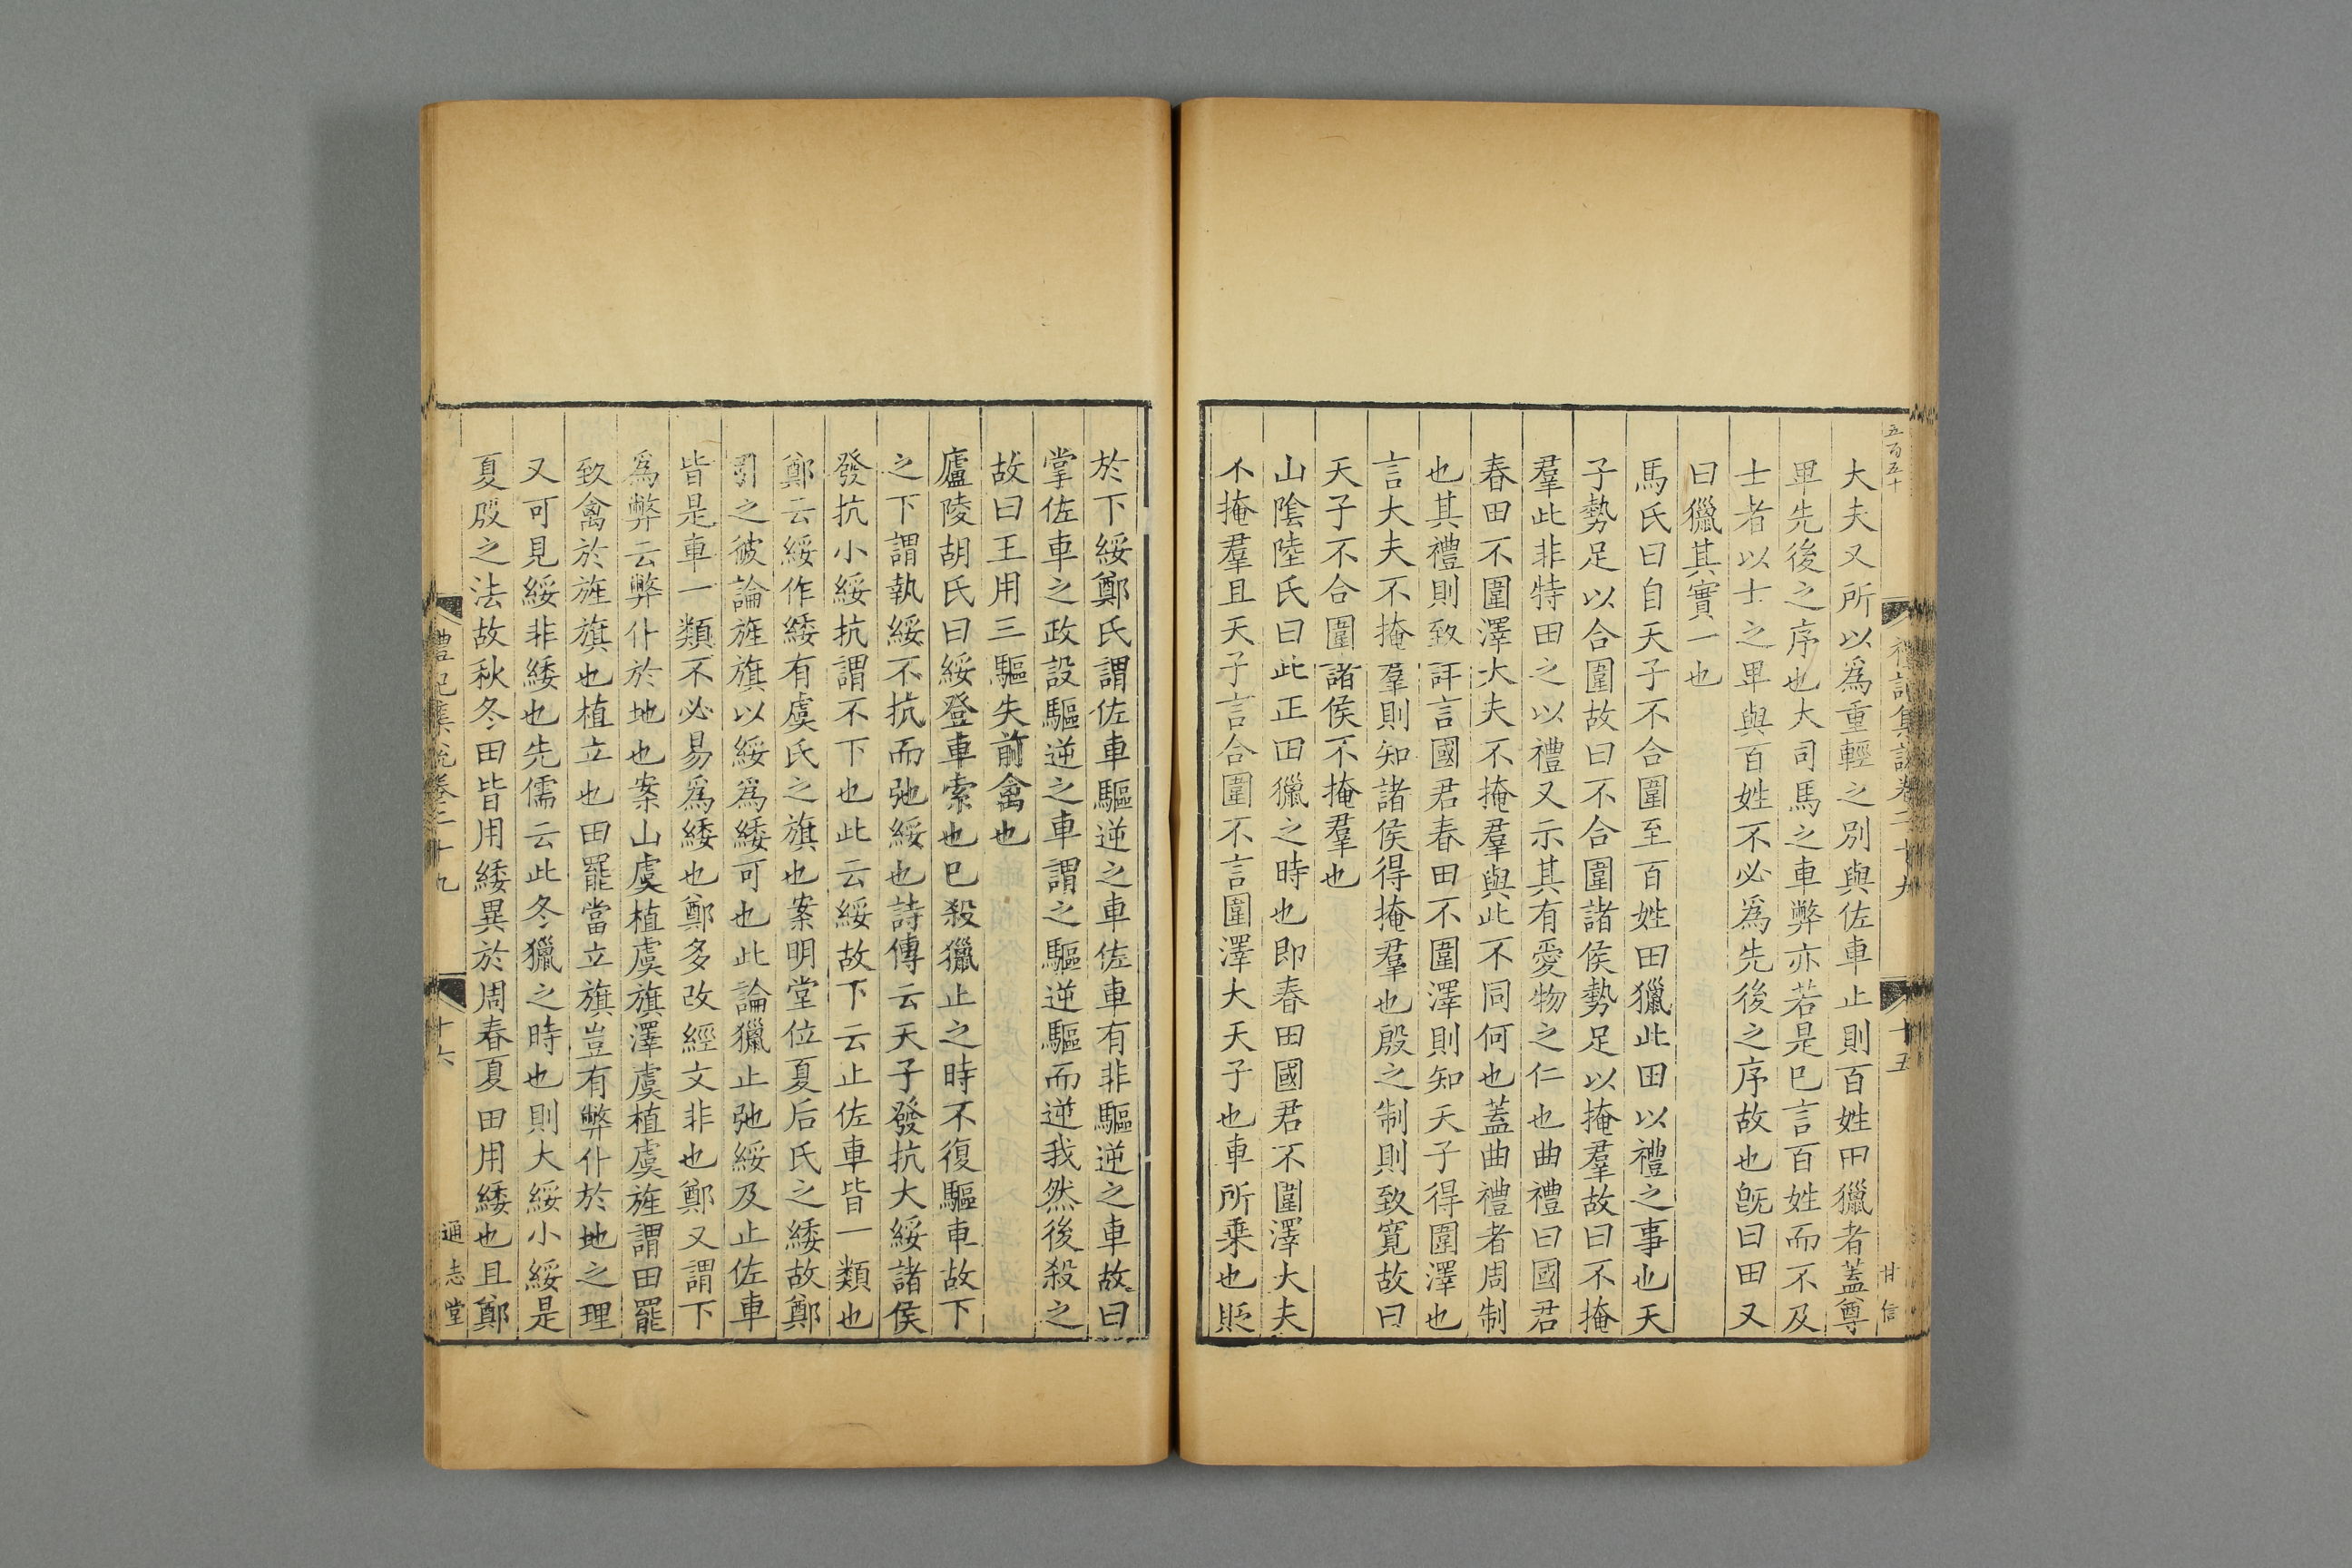 五百五十
禮記集說卷二十九
十五
甘信
大夫又所以爲重輕之別與佐車止則百姓田獵者蓋尊
卑先後之序也大司馬之車弊亦若是巳言百姓而不及
士者以士之卑與百姓不必爲先後之序故也旣曰田又
曰獵其實一也
馬氏曰自天子不合圍至百姓田獵此田以禮之事也天
子勢足以合圍故曰不合圍諸侯勢足以掩羣故曰不掩
羣此非特田之以禮又示其有愛物之仁也曲禮曰國君
春田不圍澤大夫不掩羣與此不同何也蓋曲禮者周制
也其禮則致詳言國君春田不圍澤則知天子得圍澤也
言大夫不掩羣則知諸侯得掩羣也殷之制則致寬故曰
天子不合圍諸侯不掩羣也
山陰陸氏曰此正田獵之時也即春田國君不圍澤大夫
不掩羣且天子言合圍不言圍澤大天子也車所乗也貶
於下綏鄭氏謂佐車驅逆之車佐車有非驅逆之車故曰
掌佐車之政設驅逆之車謂之驅逆驅而逆我然後殺之
故曰王用三驅失前禽也
廬陵胡氏曰綏登車索也巳殺獵止之時不復驅車故下
之下謂執綏不抗而弛綏也詩傳云天子發抗大綏諸侯
發抗小綏抗謂不下也此云綏故下云止佐車皆一類也
鄭云綏作緌有虞氏之旗也案明堂位夏后氏之緌故鄭
引之彼論旌旗以綏爲緌可也此論獵止弛綏及止佐車
皆是車一類不必易爲緌也鄭多改經文非也鄭又謂下
爲弊云弊仆於地也案山虞植虞旗澤虞植虞旌謂田罷
致禽於旌旗也植立也田罷當立旗豈有弊仆於地之理
又可見綏非緌也先儒云此冬獵之時也則大綏小綏是
夏殷之法故秋冬田皆用緌異於周春夏田用緌也且鄭
禮記集說卷二十九
十六
通志堂